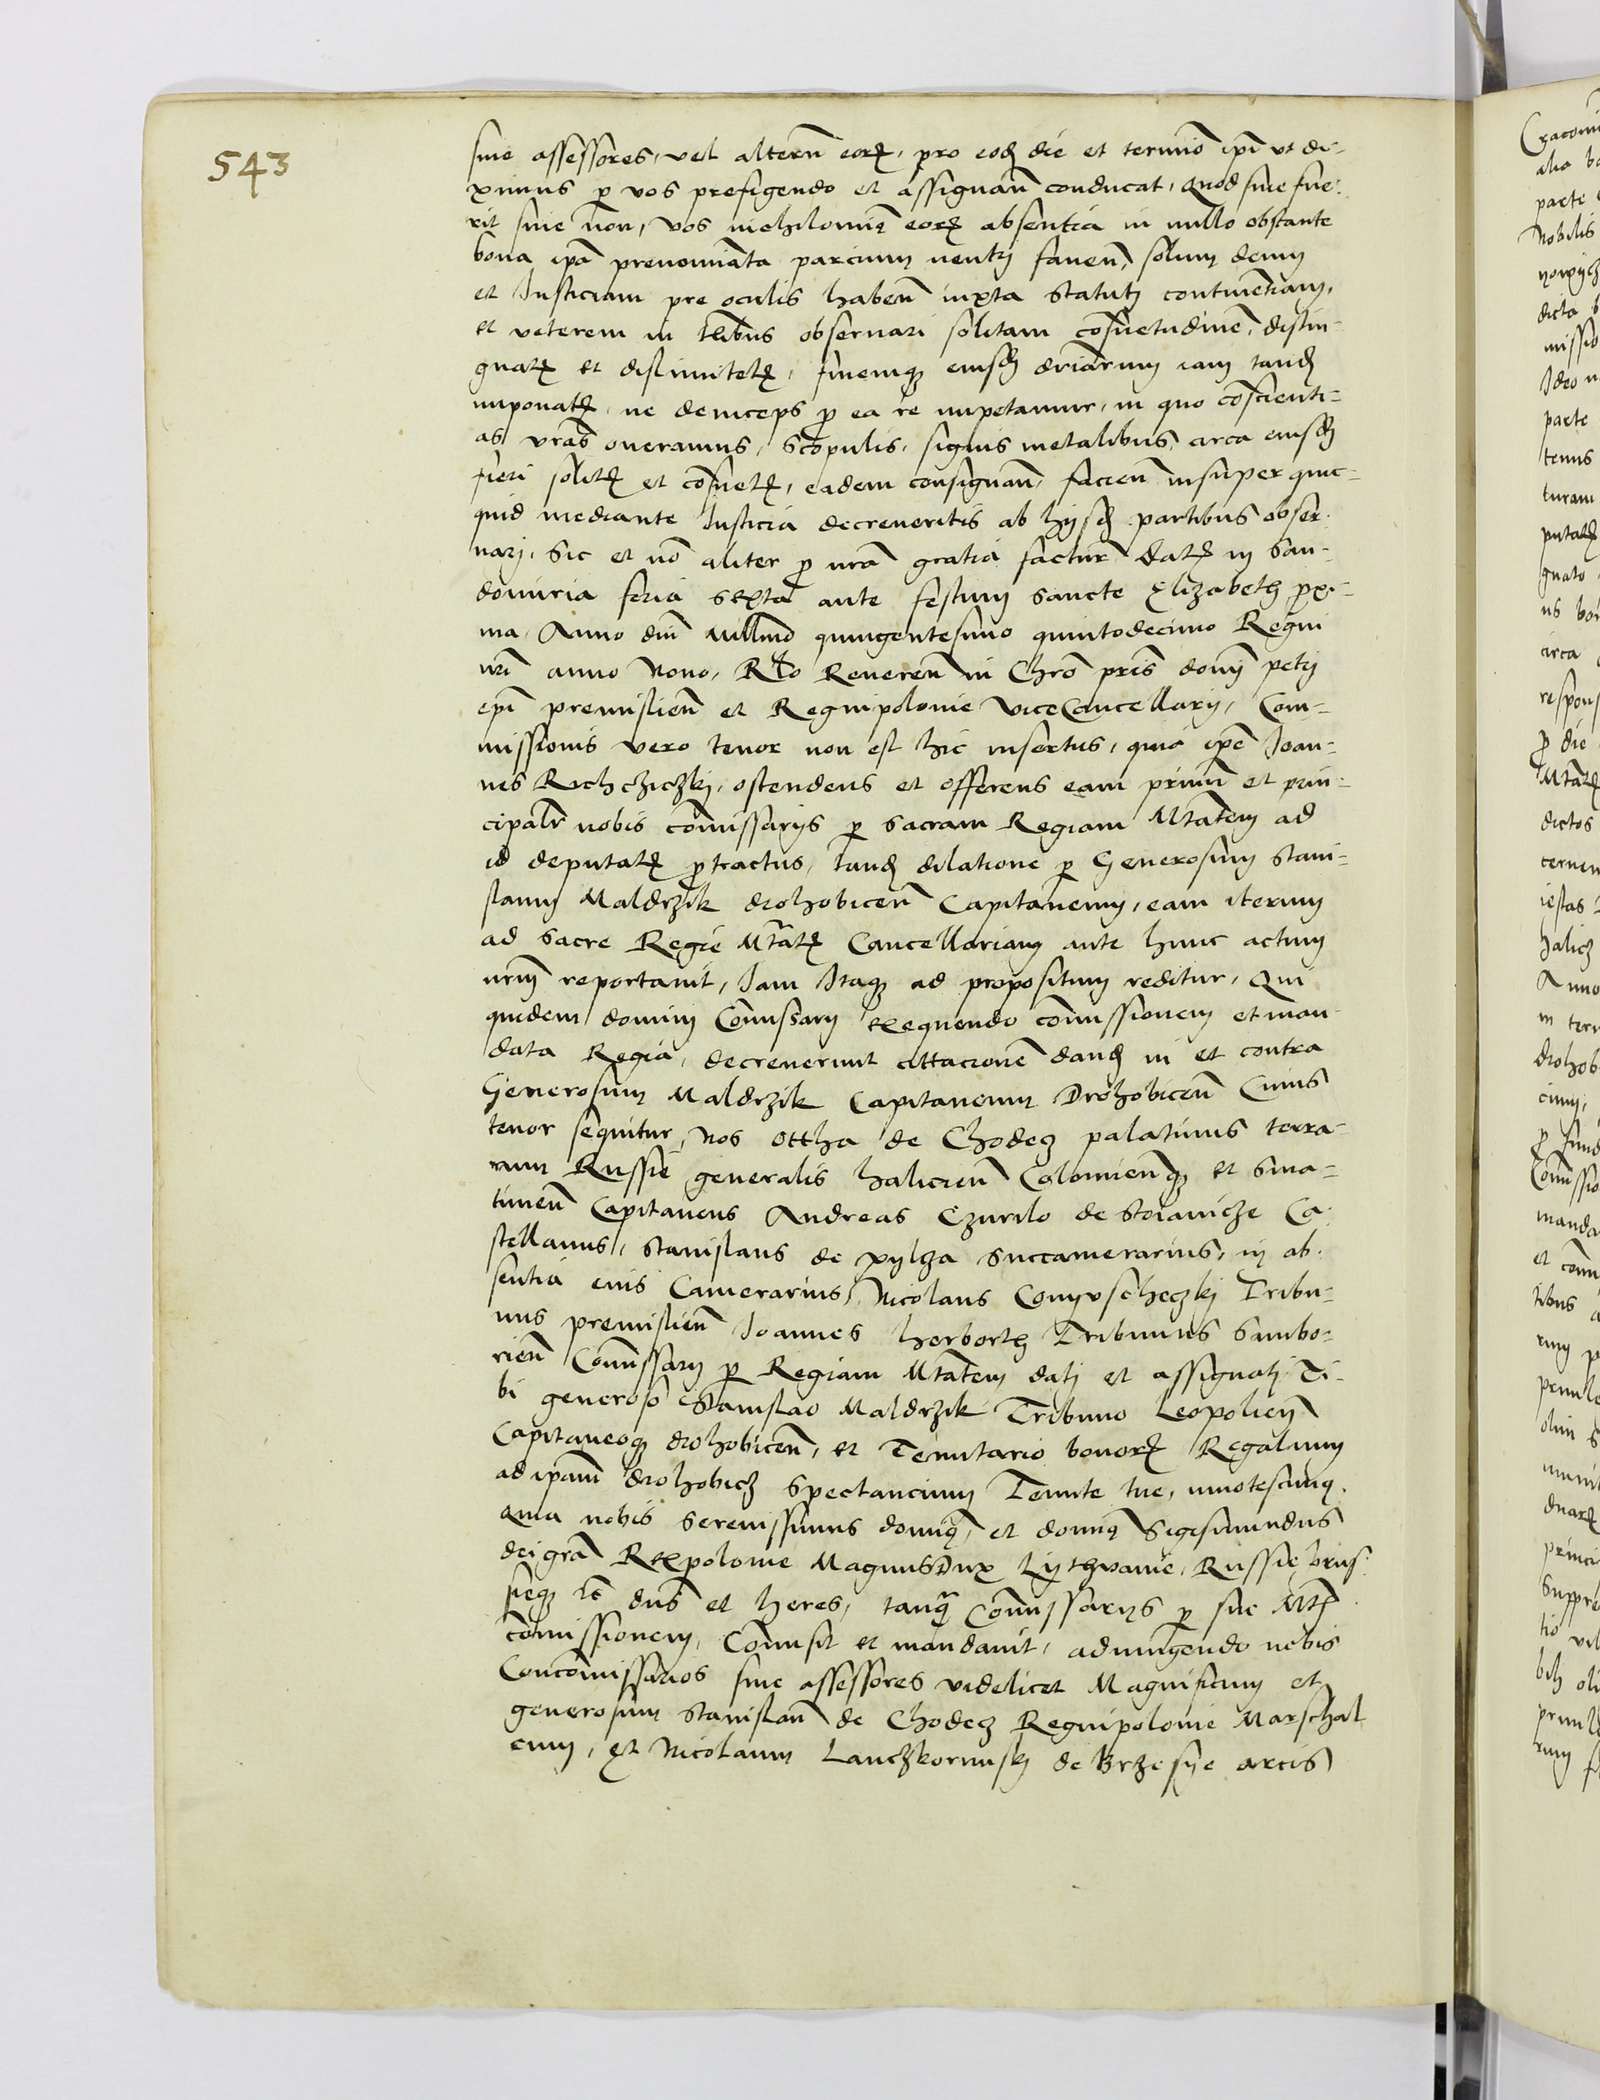 543
siue assessores, vel alterū eorꝝ, pro eodꝫ die et termino ipī vt di-
ximus p vos prefigendo et assignañ conducat, Quod siue fue-
rit siue non, vos nichilominꝰ eorꝝ absentia in nullo obstante
bona ipā prenominata parcium neutrj faueñ, solum deum
et Justiciam pre oculis habeñ iuxta statutj continentiam,
et veterem in talibus obseruari solitam cōsuetudinē, distin-
guatꝭ et dislimitetꝭ, finemqꝫ eiusdꝫ driārum iam tandꝫ
imponatꝭ, ne deinceps p ea re impetamur, in quo cōscienti-
as vrās oneramus, Scopulis, signis metalibus, circa eiusdꝫ
fieri solitꝭ et cōsuetꝭ, eadem consignañ, facieñ insuper quic-
quid mediante Justicia decreueritis ab hijsdꝫ partibus obser-
uarj, Sic et nō aliter p nrā gratia factur Datꝭ in San-
domiria feria sexta ante festum Sancte Elizabeth pxi-
ma, Anno dnī Millmo quingentesimo quintodecimo Regni
nrī anno Nono, Rlo Reuereñ in Chrō prīs domī petrj
epī premislieñ et Regnipolonie ViceCancellarij, Com-
missionis vero tenor non est hic insertus, quia ipē Joan-
nes Richcziczkj, ostendens et offerens eam primū et prin-
cipalr nobis cōmissarijs p Sacram Regiam Mtātem ad
id deputatꝭ ptractus, tandꝫ dilatione p Generosum Stani-
slaum Maldrzik drohobiceñ Capitaneum, eam iterum
ad Sacre Regie Mtātꝭ Cancellariam ante hunc actum
nrm̄ reportauit, Jam Itaqꝫ ad propositum reditur, Qui
quidem dominj Cōmissarij exequendo cōmissionem et man-
data Regia, decreuerunt cittacionē dandꝫ in et contra
Generosum Maldrzik Capitaneum Drohobiceñ Cuius
tenor sequitur, Nos Ottha de Chodecz palatinus terra-
rum Russie generalis halicieñ Colomieñqꝫ et Snia-
tineñ Capitaneus Andreas Czurilo de Stoianicze Ca-
stellanus, Stanislaus de pylcza Succamerarius, in ab-
sentia eius Camerarius, Nicolaus Conyvscheczkj Tribu-
nus premislieñ Joannes herborth Tribunus Sambo-
rieñ Cōmissarij p Regiam Mtātem datj et assignatj Ti-
bi generoso Stanislao Maldrzik Tribuno Leopolieñ
Capitaneoqꝫ drohobiceñ, et Tenutario bonorꝝ Regalium
ad ipām drohobicz Spectancium Tenute tue, innotescimꝰ.
Quia nobis Serenissimus dominꝰ, et dominꝰ Sigismundus
dei grā Rexpolonie MagnusDux Lythvanie, Russie prus-
sieqꝫ ꝛc̄ dnus et heres, tanqꝫ Cōmissarijs p sue Mtis
cōmissionem, Cōmisit et mandauit, adiungendo nobis
Concōmissarios siue assessores videlicet Magnificum et
generosum Stanislaū de Chodecz Regnipolonie Marschal
cum, et Nicolaum Lanczkorunskj de Brzesye arcis